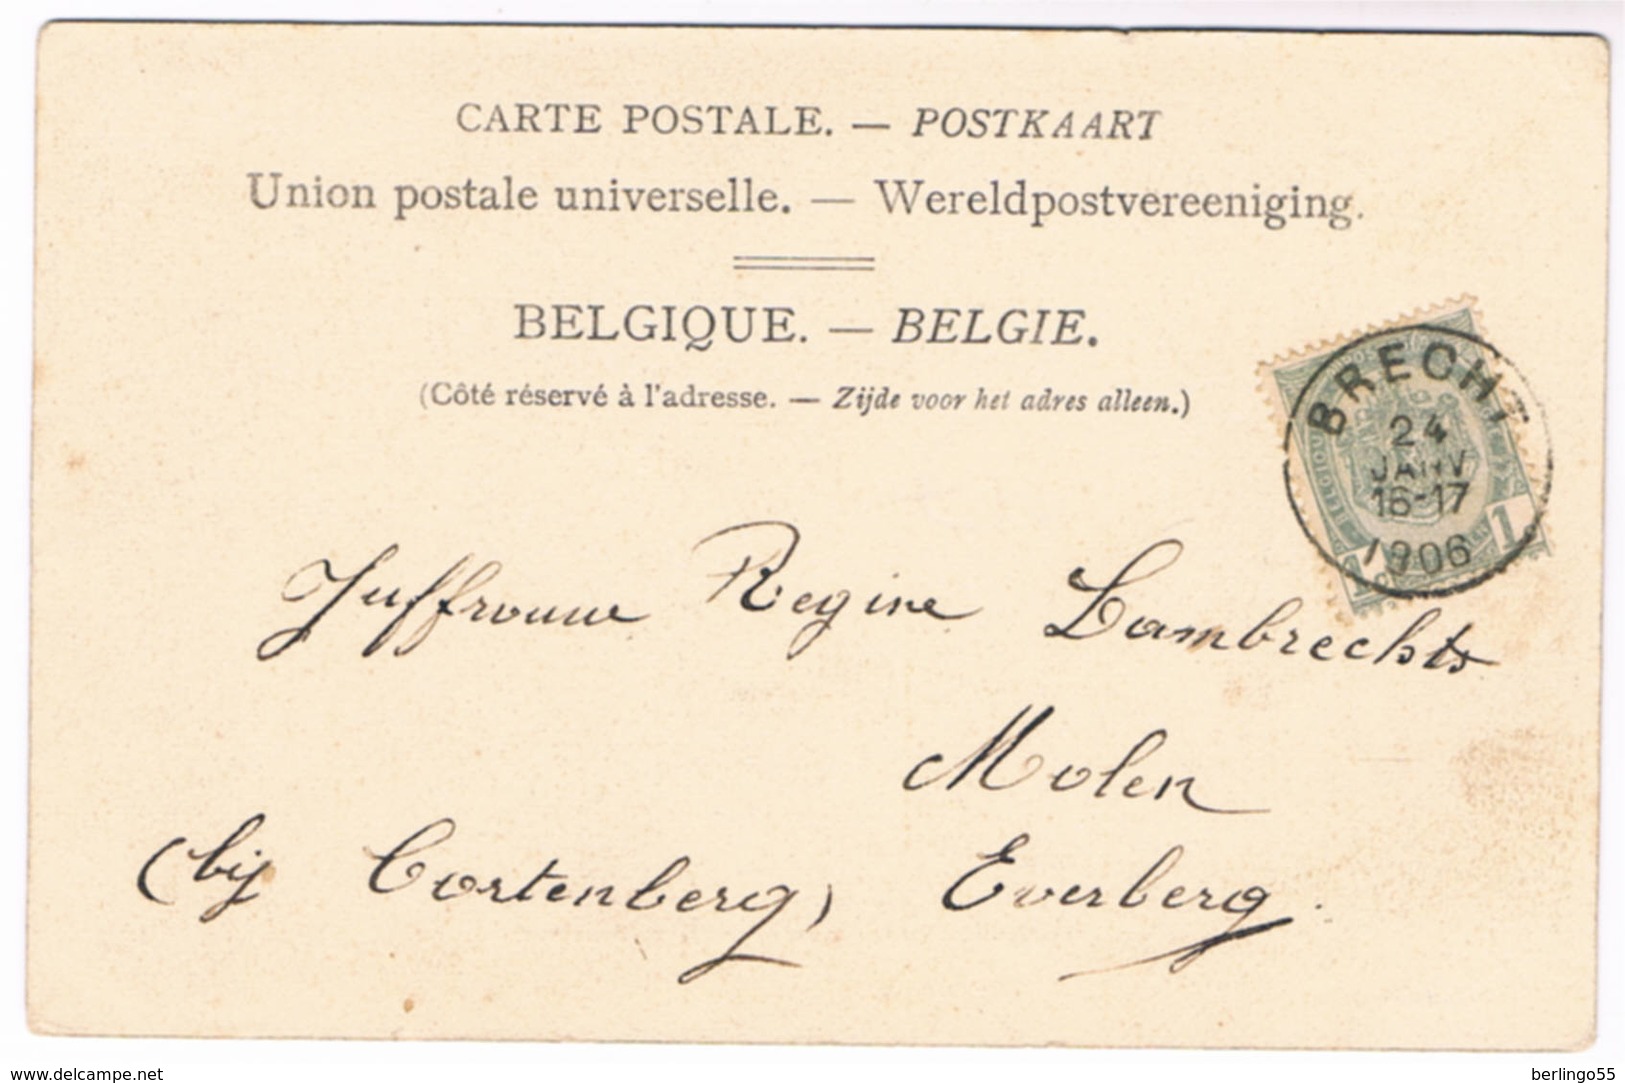 CARTE POSTALE. — POSTKAART
Union postale universelle. — Wereldpostvereeniging.
BELGIQUE. — BELGIE.
(Côté réservé à l'adresse. — Zijde voor het adres alleen.)
BRECHT
24
JANV
16-17
1906
1
Juffrouw Regine Lambrechts
Molen
(bij Cortenberg) Everberg.
www.delcampe.net
berlingo55